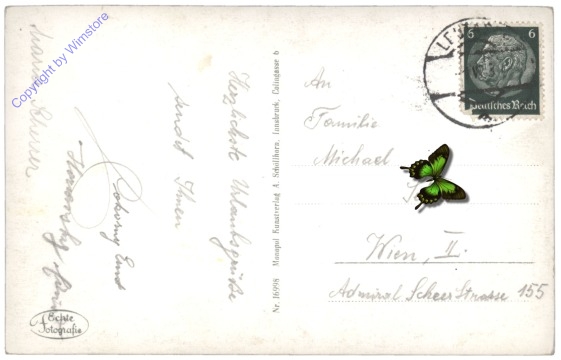 Copyright by Wimstore
Herzlichste Urlaubsgrüße
sendet Ihnen
Echte
Fotografie
Nr. 16998 Monopol Kunstverlag A. Schöllhorn, Innsbruck, Colingasse 6
6 6
Deutsches Reich
An
Familie
Michael
Wien, II.
Admiral Scheer Strasse 155